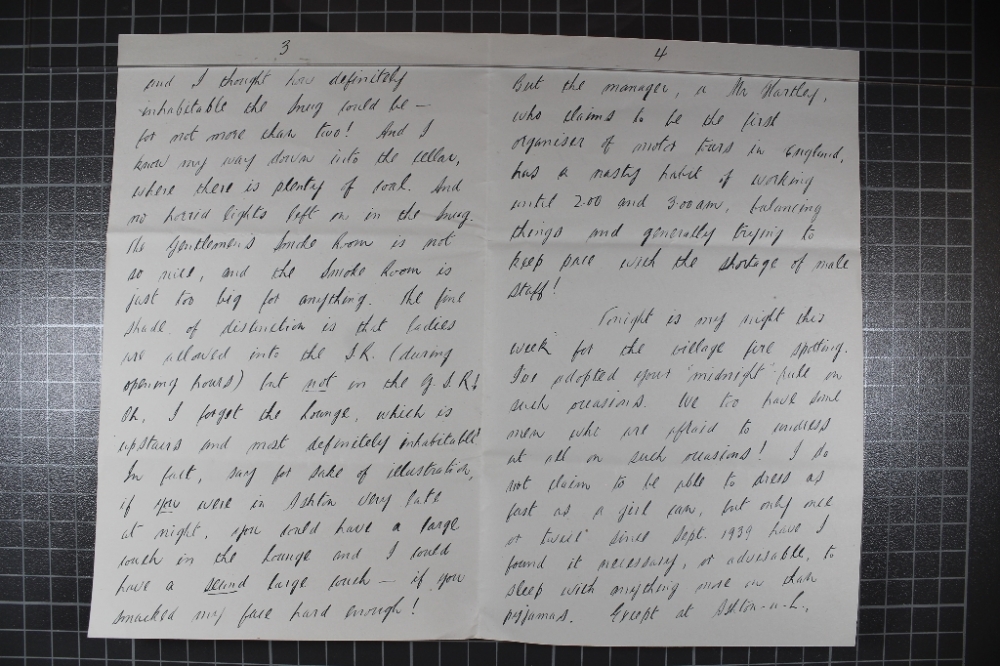 3
and I thought how definitely
inhabitable the Snug could be —
for not more than two! And I
know my way down into the cellar,
where there is plenty of coal. And
no horrid lights left on in the Snug.
The Gentlemen's Smoke Room is not
so nice, and the Smoke Room is
just too big for anything. The fine
shade of distinction is that ladies
are allowed into the S.R. (during
opening hours) but not in the G.S.R!
Oh, I forgot the Lounge, which is
upstairs and most definitely inhabitable!
In fact, say for sake of illustration,
if you were in Ashton very late
at night, you could have a large
couch in the Lounge and I could
have a second large couch — if you
smacked my face hard enough!
4
But the manager, a Mr Hartley,
who claims to be the first
organiser of motor tours in England,
has a nasty habit of working
until 2.00 and 3.00am, balancing
things and generally trying to
keep pace with the shortage of male
staff!
Tonight is my night this
week for the village fire spotting.
I've adopted your "midnight" rule on
such occasions. We too have some
men who are afraid to undress
at all on such occasions! I do
not claim to be able to dress as
fast as a girl can, but only once
or twice since Sept. 1939 have I
found it necessary, or advisable, to
sleep with anything more on than
pyjamas. Except at Ashton-u-L.,